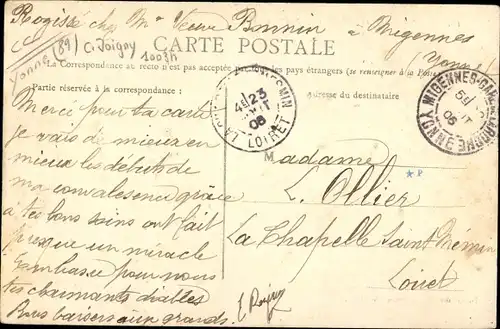 Rogissé chez Mme Veuve Bonnin à Migennes
(Yonne)
Yonne (89) C. Joigny 1003h
CARTE POSTALE
La Correspondance au recto n'est pas acceptée par les pays étrangers (se renseigner à la Poste)
Partie réservée à la correspondance :
Adresse du destinataire
LOIRET
23
08
MIGENNES
YONNE
08
Merci pour ta carte
je vais de mieux en
mieux les débuts de
ma convalescence grâce
à tes bons soins ont fait
presque un miracle
Embrasse pour nous
tes charmants diables
Bons baisers aux grands
Madame
L. Ollier
La Chapelle Saint Mesmin
Loiret